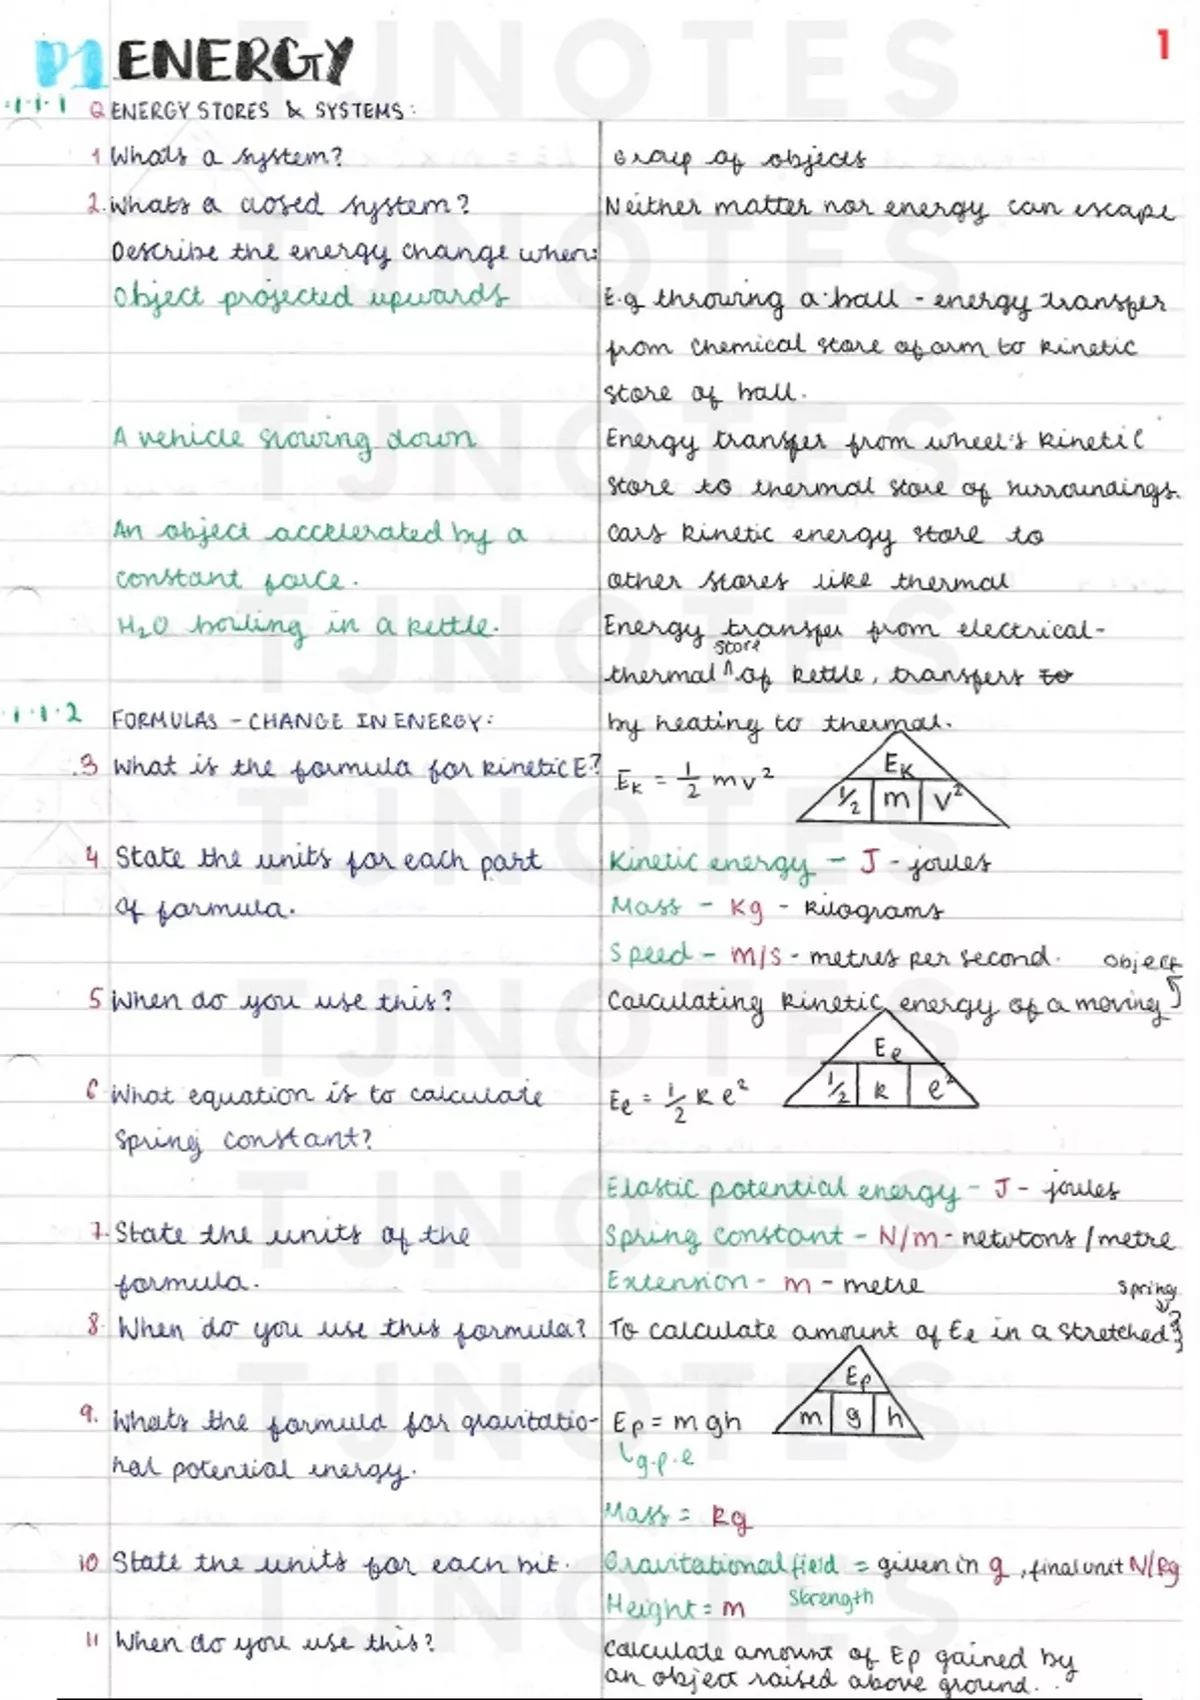 1
P1 ENERGY
1.1.1 Q ENERGY STORES & SYSTEMS:
1 Whats a system? Group of objects
2. Whats a closed system? Neither matter nor energy can escape
Describe the energy change when:
Object projected upwards E.g throwing a ball - energy transfer
from chemical store of arm to kinetic
store of ball.
A vehicle slowing down Energy transfer from wheel's kinetic
store to thermal store of surroundings.
An object accelerated by a cars kinetic energy store to
constant force. other stores like thermal
H₂O boiling in a kettle. Energy transfer from electrical-
store
thermal ^ of kettle, transfers to
1.1.2 FORMULAS - CHANGE IN ENERGY: by heating to thermal.
3 What is the formula for kinetic E? Eₖ = 1/2 mv²
Eₖ
1/2 m v²
4 State the units for each part Kinetic energy - J - joules
of formula. Mass - Kg - kilograms
Speed - m/s - metres per second. object
5 When do you use this? Calculating kinetic energy of a moving
Ee
1/2 k e²
6 What equation is to calculate Ee = 1/2 k e²
spring constant?
Elastic potential energy - J - joules
7. State the units of the Spring constant - N/m - newtons/metre
formula. Extension - m - metre
spring
8. When do you use this formula? To calculate amount of Ee in a stretched
Ep
m g h
9. Whats the formula for gravitatio- Ep = mgh
nal potential energy. g.p.e
Mass = kg
10 State the units for each bit. Gravitational field = given in g, final unit N/kg
strength
Height = m
11 When do you use this? calculate amount of Ep gained by
an object raised above ground.
TJNOTES
TJNOTES
TJNOTES
TJNOTES
TJNOTES
TJNOTES
TJNOTES
TJNOTES
TJNOTES